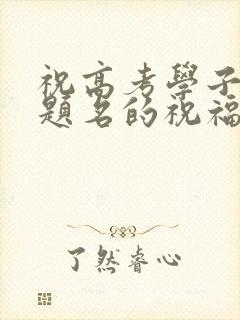 祝高考學子
題名的祝福
了然睿心